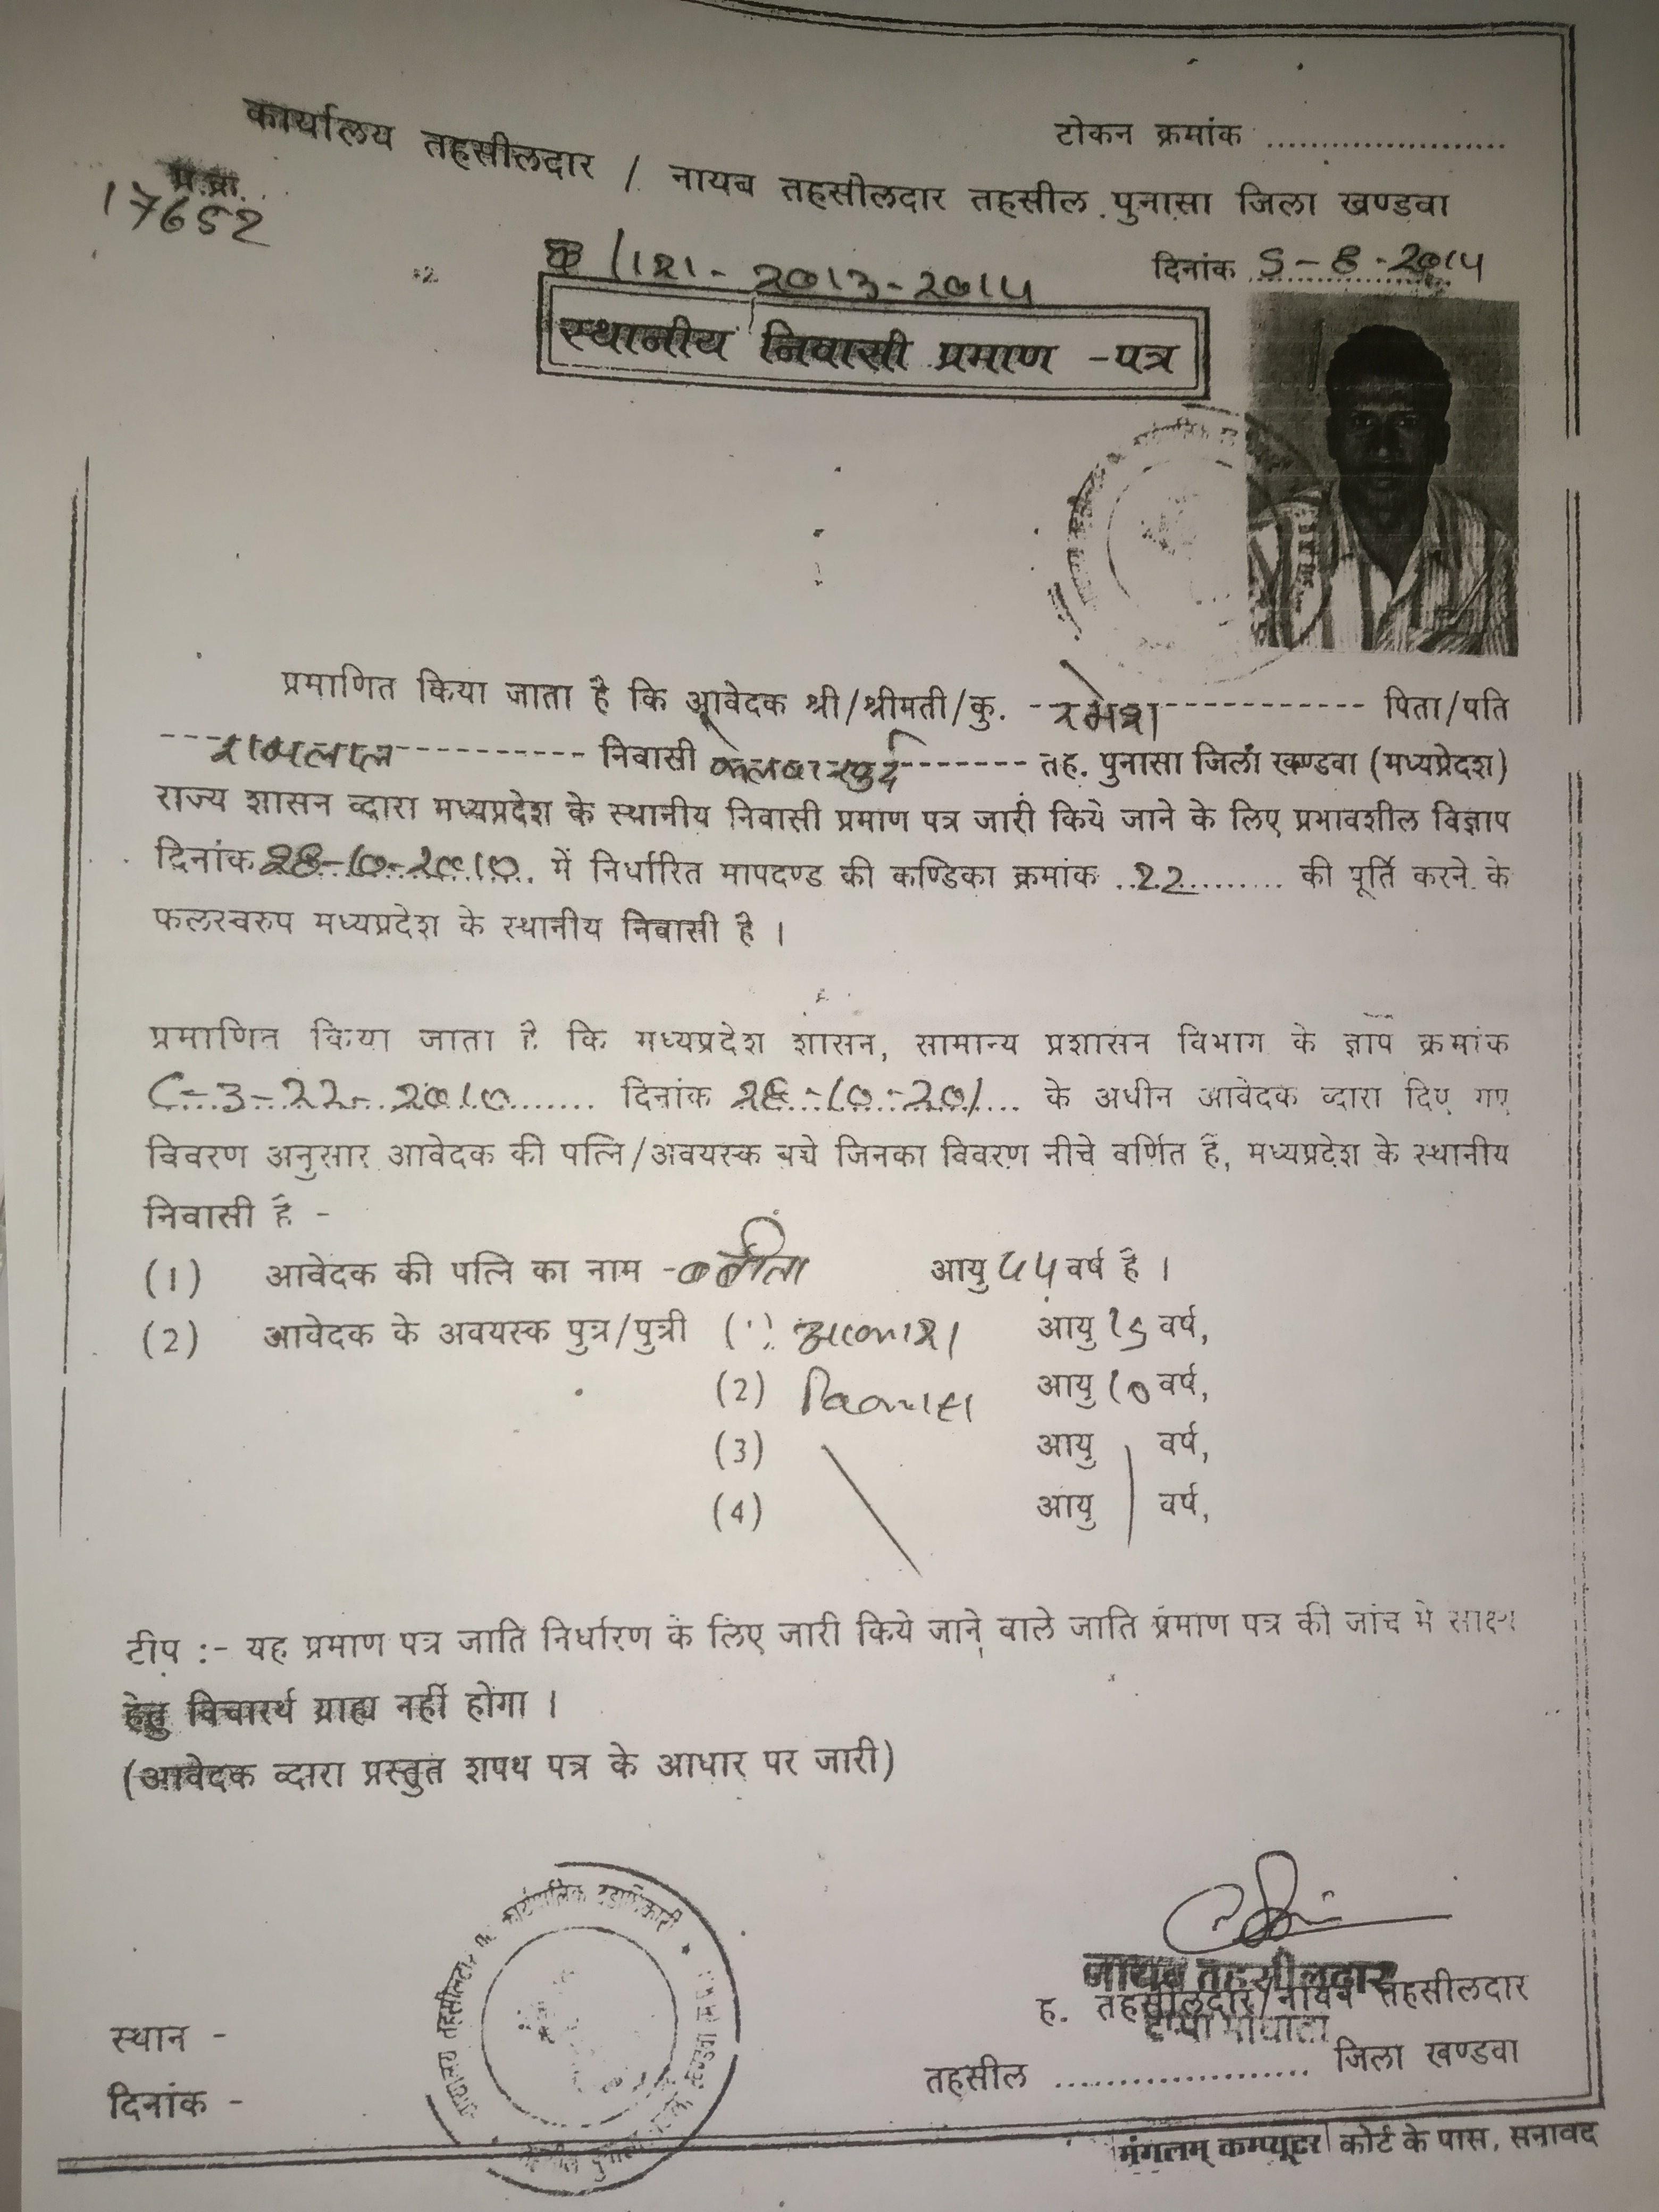 टोकन क्रमांक ........................
कार्यालय तहसीलदार / नायब तहसीलदार तहसील पुनासा जिला खण्डवा
प्र.प्रा.
17652
/121 - 2013-2014
दिनांक 5-8-2014
स्थानीय निवासी प्रमाण -पत्र
प्रमाणित किया जाता है कि आवेदक श्री/श्रीमती/कु. - रमेश ------------ पिता/पति
--- रामलाल ---------- निवासी केलवा खुर्द ------- तह. पुनासा जिला खण्डवा (मध्यप्रेदश)
राज्य शासन व्दारा मध्यप्रदेश के स्थानीय निवासी प्रमाण पत्र जारी किये जाने के लिए प्रभावशील विज्ञाप
दिनांक 28-10-2010 में निर्धारित मापदण्ड की कण्डिका क्रमांक ..22.......... की पूर्ति करने के
फलस्वरुप मध्यप्रदेश के स्थानीय निवासी है ।
प्रमाणित किया जाता है कि मध्यप्रदेश शासन, सामान्य प्रशासन विभाग के ज्ञाप क्रमांक
C-3-22-2010....... दिनांक 28-10-201.... के अधीन आवेदक व्दारा दिए गए
विवरण अनुसार आवेदक की पत्नि/अवयस्क बच्चे जिनका विवरण नीचे वर्णित हैं, मध्यप्रदेश के स्थानीय
निवासी है -
(1) आवेदक की पत्नि का नाम - आयु 44 वर्ष है ।
(2) आवेदक के अवयस्क पुत्र/पुत्री (1) आकाश आयु 15 वर्ष,
(2) विकास आयु 10 वर्ष,
(3) आयु वर्ष,
(4) आयु वर्ष,
टीप :- यह प्रमाण पत्र जाति निर्धारण के लिए जारी किये जाने वाले जाति प्रमाण पत्र की जांच मे साक्ष्य
हेतु विचारर्थ ग्राह्य नहीं होगा ।
(आवेदक व्दारा प्रस्तुत शपथ पत्र के आधार पर जारी)
नायब तहसीलदार
ह. तहसीलदार/नायब तहसीलदार
स्थान -
तहसील ..................... जिला खण्डवा
दिनांक -
मंगलम् कम्प्यूटर कोर्ट के पास, सनावद